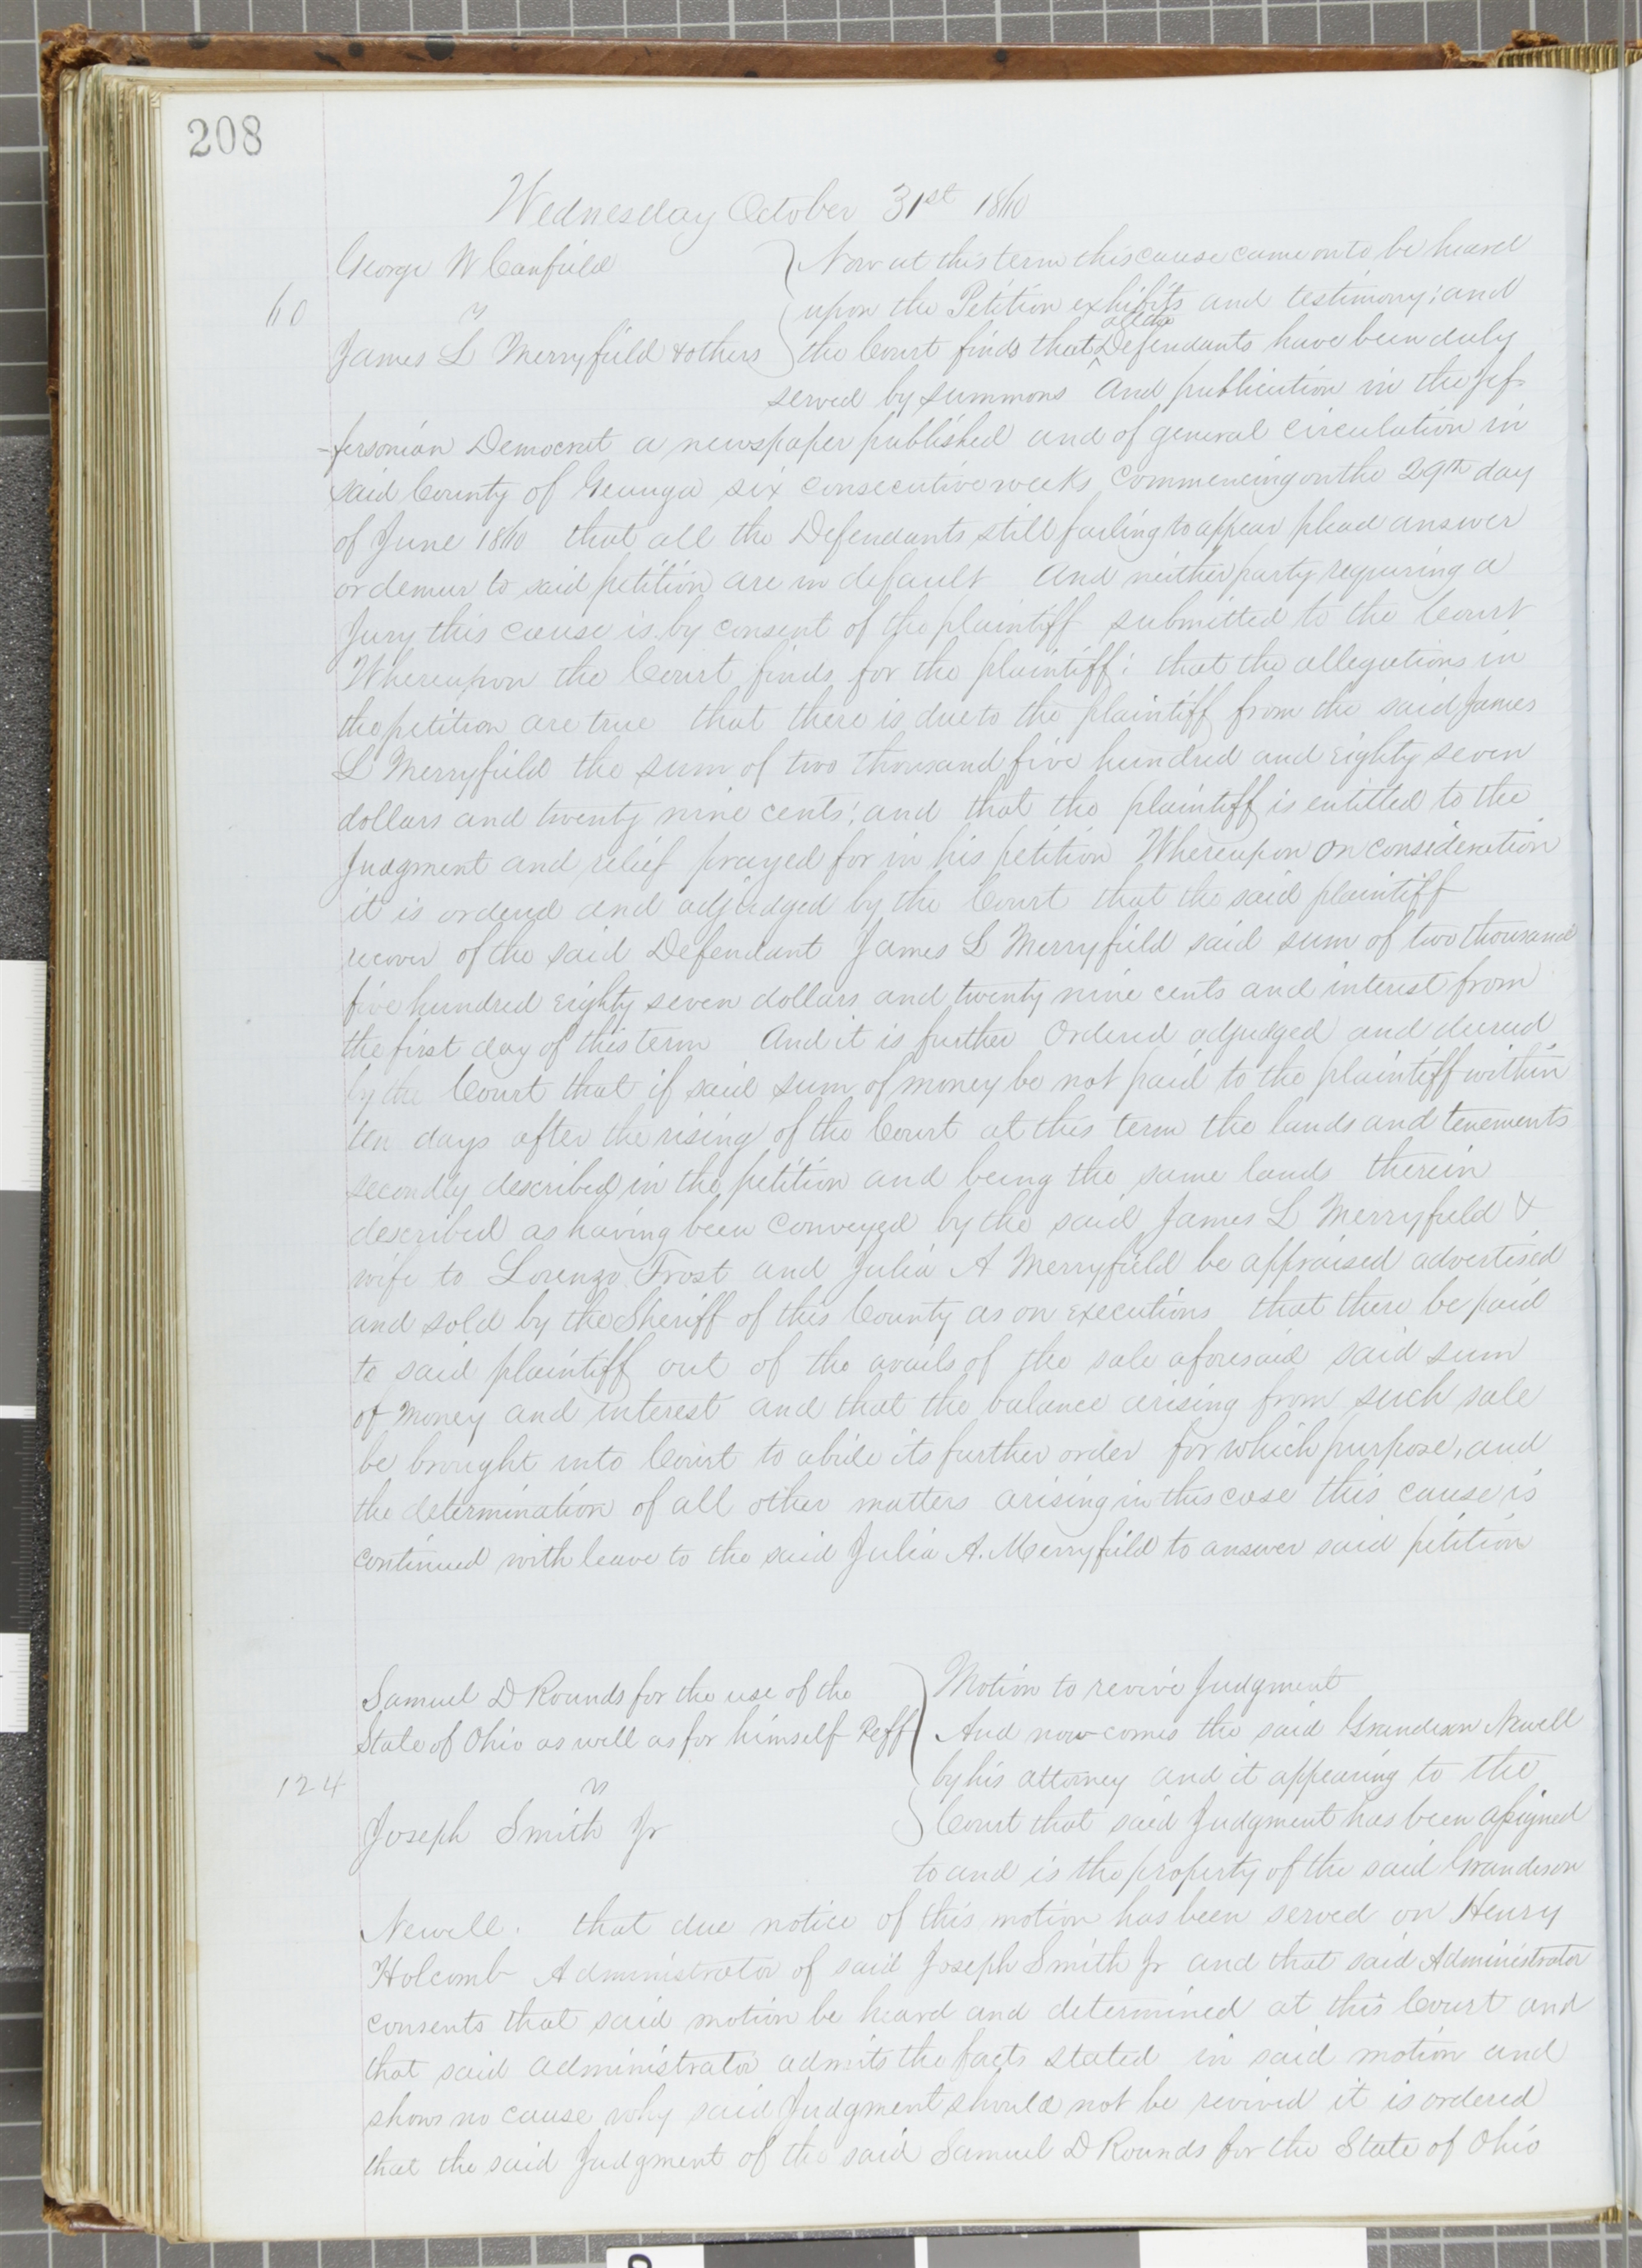 208
Wednesday October 31st 1860
George W Canfield
60
vs
James L Merryfield & others
Now at this term this cause came on to be heard
upon the Petition exhibits and testimony; and
the Court finds that all the Defendants have been duly
served by summons And publication in the Jef-
-fersonian Democrat a newspaper published and of general circulation in
said County of Geauga six consecutive weeks commencing on the 29th day
of June 1860 that all the Defendants still failing to appear plead answer
or demur to said petition are in default And neither party requiring a
Jury this cause is by consent of the plaintiff submitted to the Court
Whereupon the Court finds for the plaintiff: that the allegations in
the petition are true that there is due to the plaintiff from the said James
L Merryfield the sum of two thousand five hundred and eighty seven
dollars and twenty nine cents; and that the plaintiff is entitled to the
Judgment and relief prayed for in his petition Whereupon on consideration
it is orderd and adjudged by the Court that the said plaintiff
recover of the said Defendant James L Merryfield said sum of two thousand
five hundred eighty seven dollars and twenty nine cents and interest from
the first day of this term And it is further Ordered adjudged and decreed
by the Court that if said sum of money be not paid to the plaintiff within
ten days after the rising of the Court at this term the lands and tenements
secondly described in the petition and being the same lands therein
described as having been conveyed by the said James L Merryfield &
wife to Lorenzo Frost and Julia A Merryfield be appraised advertised
and sold by the Sheriff of this County as on executions that there be paid
to said plaintiff out of the avails of the sale aforesaid said sum
of money and interest and that the balance arising from such sale
be brought into Court to abide its further order for which purpose, and
the determination of all other matters arising in this case this cause is
continued with leave to the said Julia A. Merryfield to answer said petition
Samuel D Rounds for the use of the
State of Ohio as well as for himself Peff
124
vs
Joseph Smith Jr
Motion to revive Judgment
And now comes the said Grandison Newell
by his attorney and it appearing to the
Court that said Judgment has been assigned
to and is the property of the said Grandison
Newell. that due notice of this motion has been served on Henry
Holcomb Administrator of said Joseph Smith Jr and that said Administrator
consents that said motion be heard and determined at this Court and
that said administrator admits the facts stated in said motion and
shows no cause why said Judgment should not be revived it is ordered
that the said Judgment of the said Samuel D Rounds for the State of Ohio